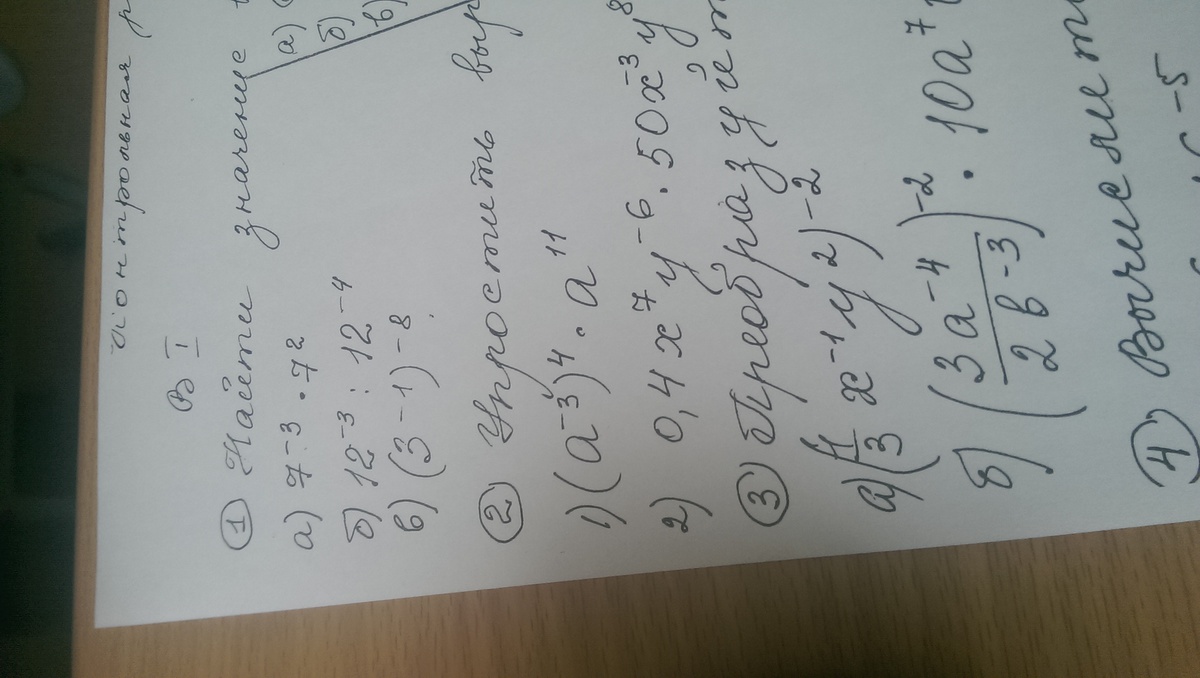 Контрольная р
В I
① Найти значение
а) 7⁻³ · 7²
б) 12⁻³ : 12⁻⁴
в) (3⁻¹)⁻⁸
а) (
б)
в)
② Упростить выр
1) (a⁻³)⁴ · a¹¹
2) 0,4x⁷y⁻⁶ · 50x⁻³y⁸
③ Преобразуйте
а) (1/3 x⁻¹y²)⁻²
б) (3a⁻⁴/2b⁻³)⁻² · 10a⁷
④ Вычислит